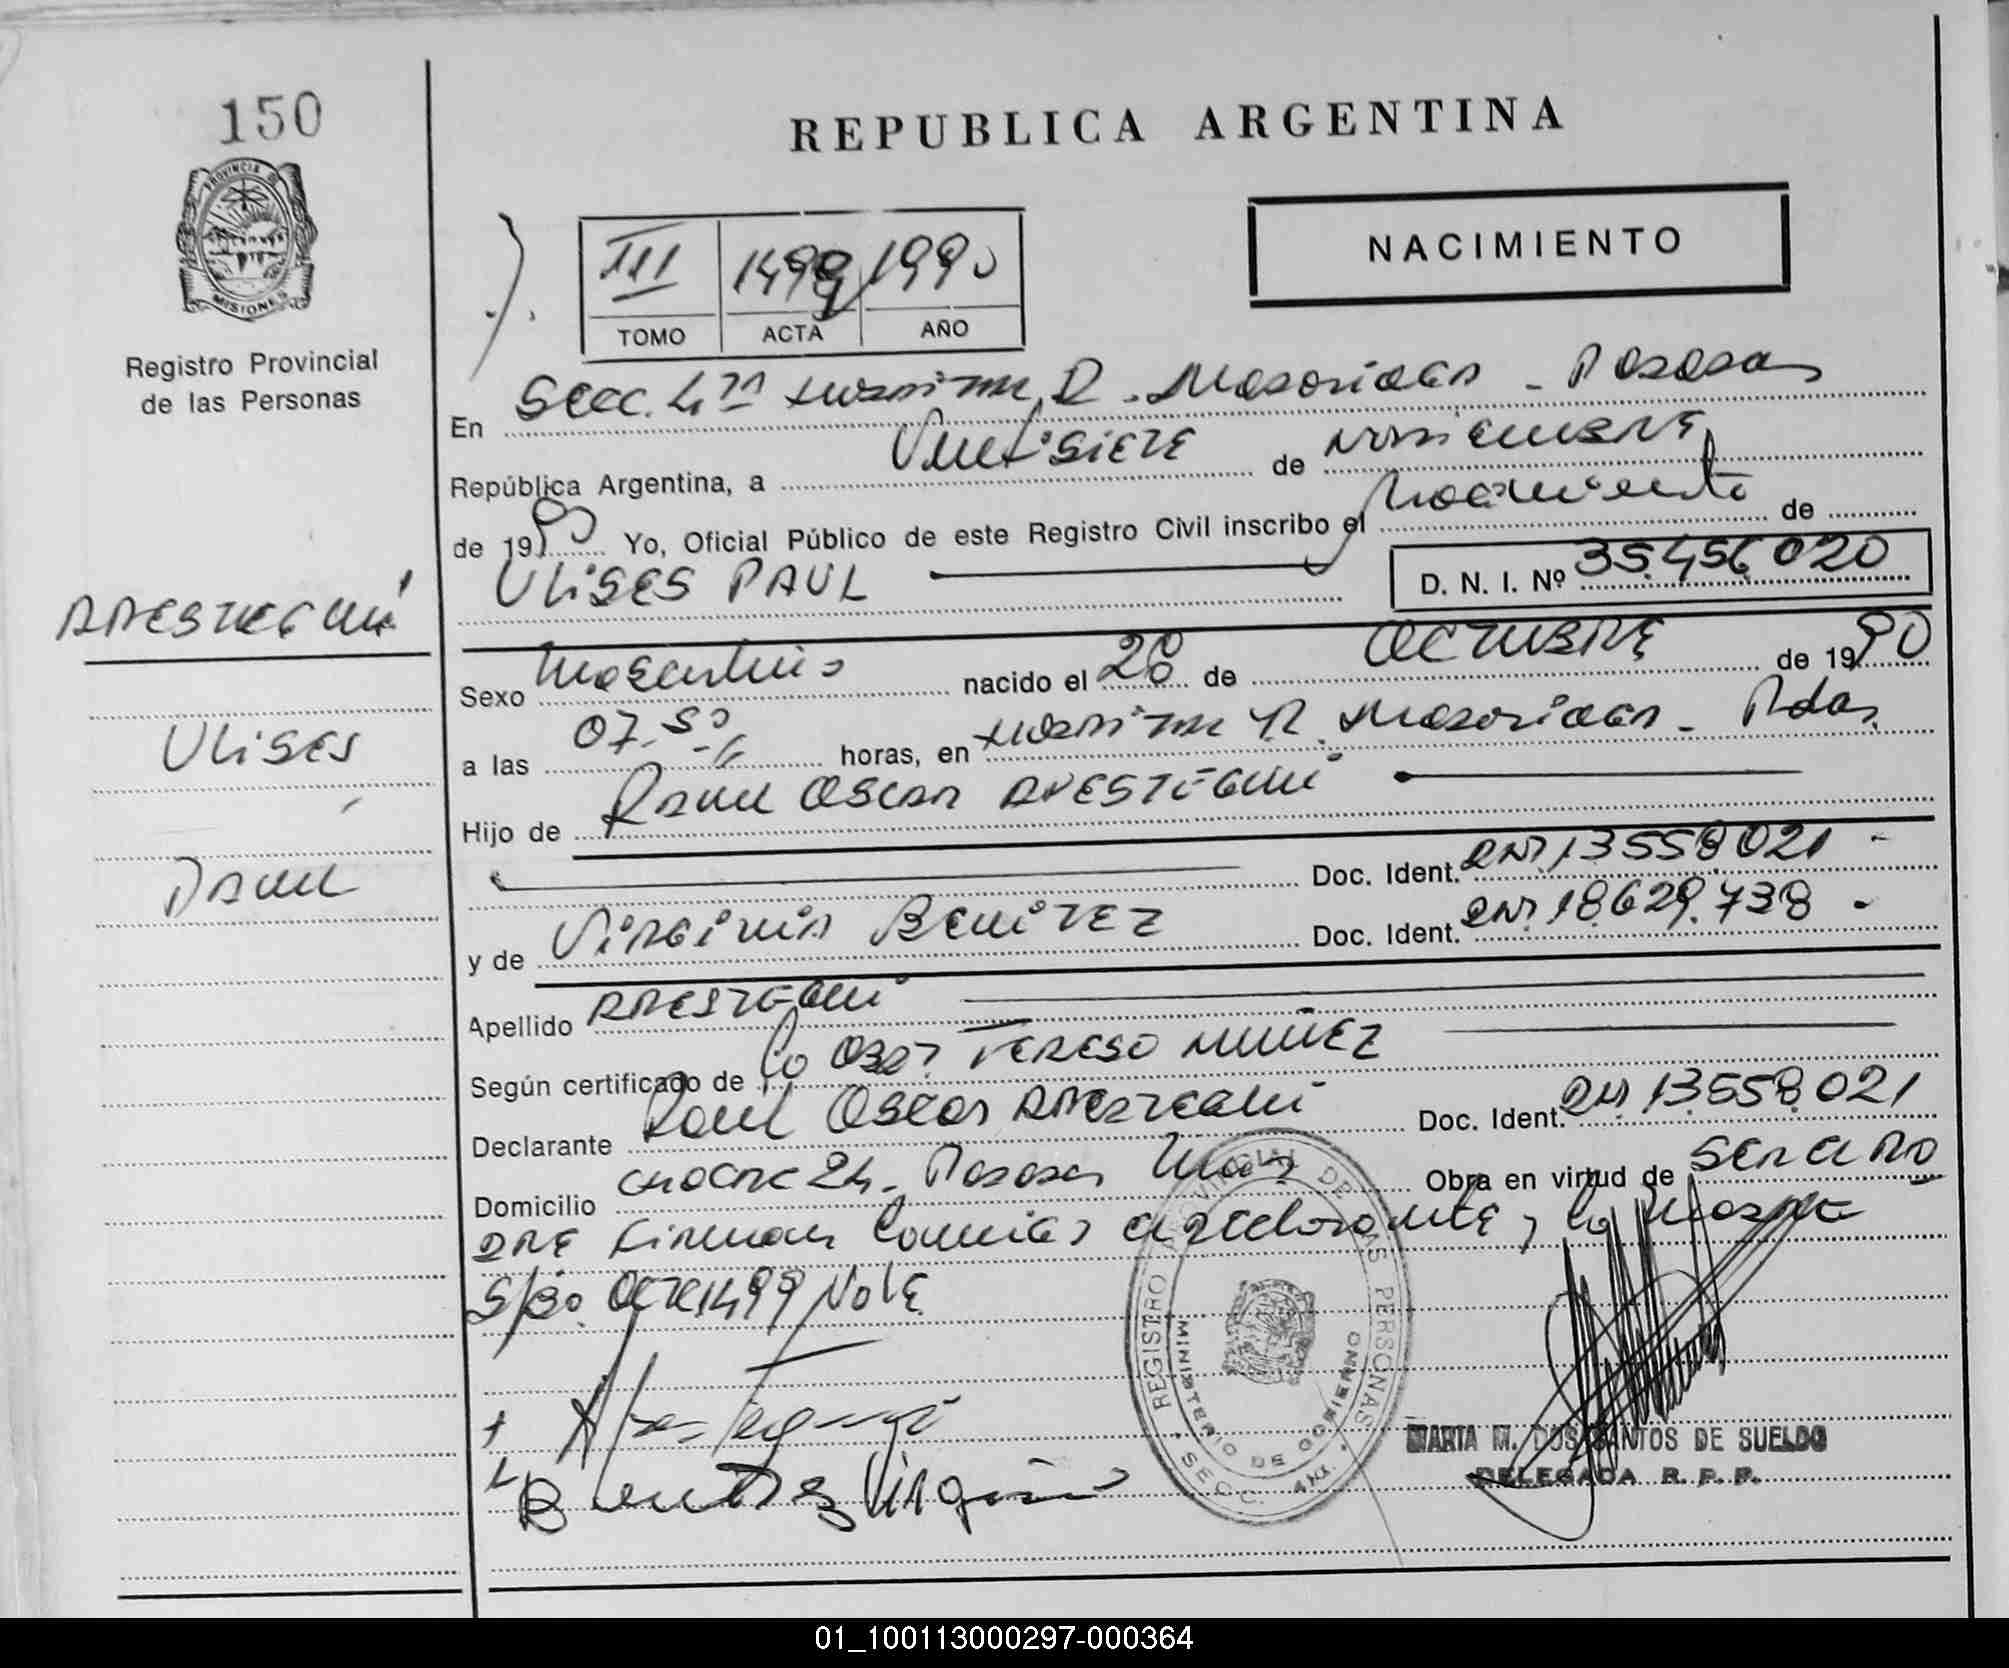 150
PROVINCIA DE
MISIONES
Registro Provincial
de las Personas
REPUBLICA ARGENTINA
NACIMIENTO
III 1499 1990
TOMO ACTA AÑO
En Secc. 4ta Posadas
República Argentina, a Veintisiete de Noviembre
de 1990 Yo, Oficial Público de este Registro Civil inscribo el Nacimiento de
ULISES PAUL D. N. I. Nº 35.456.020
ARESTEGUI
Ulises
Paul
Sexo Masculino nacido el 28 de OCTUBRE de 1990
a las 07.50 horas, en Pdas.
Hijo de Raul Oscar ARESTEGUI
Doc. Ident. DNI 13558021 -
y de Virginia Benitez Doc. Ident. DNI 18.629.738 -
Apellido ARESTEGUI
Según certificado de la Obst. Tereso Muñez
Declarante Raul Oscar Arestegui Doc. Ident. DNI 13.558.021
Domicilio 24 - Posadas Mnes Obra en virtud de ser el PA
DRE Firman conmigo el declarante y la Madre
S/Bo. 1499 Vale
Arestegui
Benitez Virginia
REGISTRO PROVINCIAL DE LAS PERSONAS
MINISTERIO DE GOBIERNO
SECC. 4ta.
MARTA M. DOS SANTOS DE SUELDO
DELEGADA R. P. P.
01_100113000297-000364